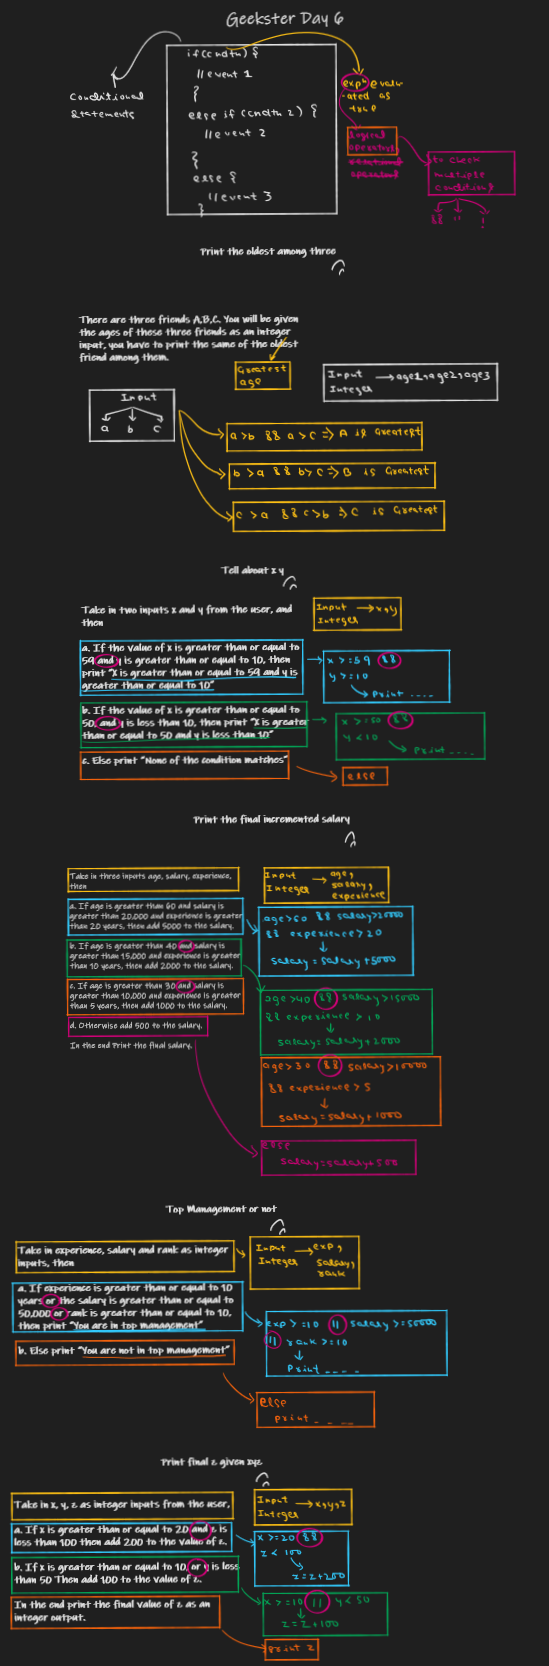 Geekster Day 6
Conditional
Statements
if(cndtn) {
//event 1
}
else if (cndtn 2) {
//event 2
}
else {
//event 3
}
expn evalu
-ated as
true
logical
operators
relational
operators
to check
multiple
conditions
&& || !
Print the oldest among three
There are three friends A,B,C. You will be given
the ages of these three friends as an integer
input, you have to print the same of the oldest
friend among them.
Greatest
age
Input → age1,age2,age3
Integer
Input
a b c
a>b && a>c => A is Greatest
b>a && b>c => B is Greatest
c>a && c>b => C is Greatest
Tell about x y
Take in two inputs x and y from the user, and
then
Input → x,y
Integer
a. If the value of x is greater than or equal to
59 and y is greater than or equal to 10, then
print "X is greater than or equal to 59 and y is
greater than or equal to 10"
x >=59 &&
y >=10
Print ----
b. If the value of x is greater than or equal to
50, and y is less than 10, then print "X is greater
than or equal to 50 and y is less than 10"
x >=50 &&
y <10
Print ----
c. Else print "None of the condition matches"
else
Print the final incremented salary
Take in three inputs age, salary, experience,
then
Input → age,
Integer salary,
experience
a. If age is greater than 60 and salary is
greater than 20,000 and experience is greater
than 20 years, then add 5000 to the salary.
age>60 && salary>20000
&& experience>20
salary=salary+5000
b. If age is greater than 40 and salary is
greater than 15,000 and experience is greater
than 10 years, then add 2000 to the salary.
age >40 && salary>15000
&& experience > 10
salary=salary+2000
c. If age is greater than 30 and salary is
greater than 10,000 and experience is greater
than 5 years, then add 1000 to the salary.
age>30 && salary>10000
&& experience > 5
salary=salary+1000
d. Otherwise add 500 to the salary.
In the end Print the final salary.
else
salary=salary+500
Top Management or not
Take in experience, salary and rank as integer
inputs, then
Input → exp,
Integer salary,
rank
a. If experience is greater than or equal to 10
years or the salary is greater than or equal to
50,000 or rank is greater than or equal to 10,
then print "You are in top management"
exp >=10 || salary >=50000
|| rank >=10
Print ----
b. Else print "You are not in top management"
else
print ----
Print final z given xyz
Take in x, y, z as integer inputs from the user,
Input → x,y,z
Integer
a. If x is greater than or equal to 20 and z is
less than 100 then add 200 to the value of z.
x >=20 &&
z < 100
z=z+200
b. If x is greater than or equal to 10, or y is less
than 50 Then add 100 to the value of z.
x >=10 || y <50
z=z+100
In the end print the final value of z as an
integer output.
print z